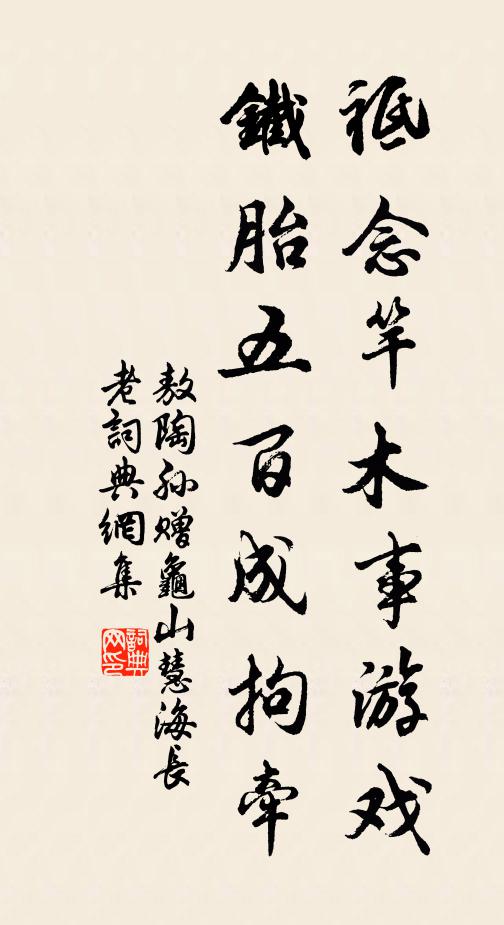 祗念竿木事游戏
鐵胎五百成拘牽
敖陶孙赠龜山慧海長
老詞典網集
詞典网印